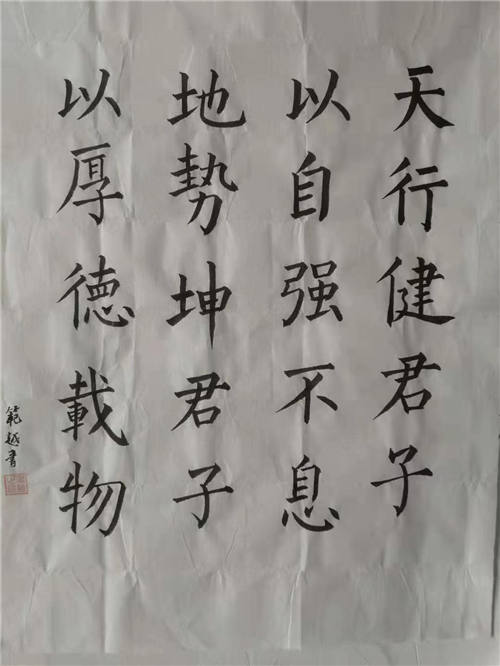 天行健君子
以自强不息
地勢坤君子
以厚德載物
範越書